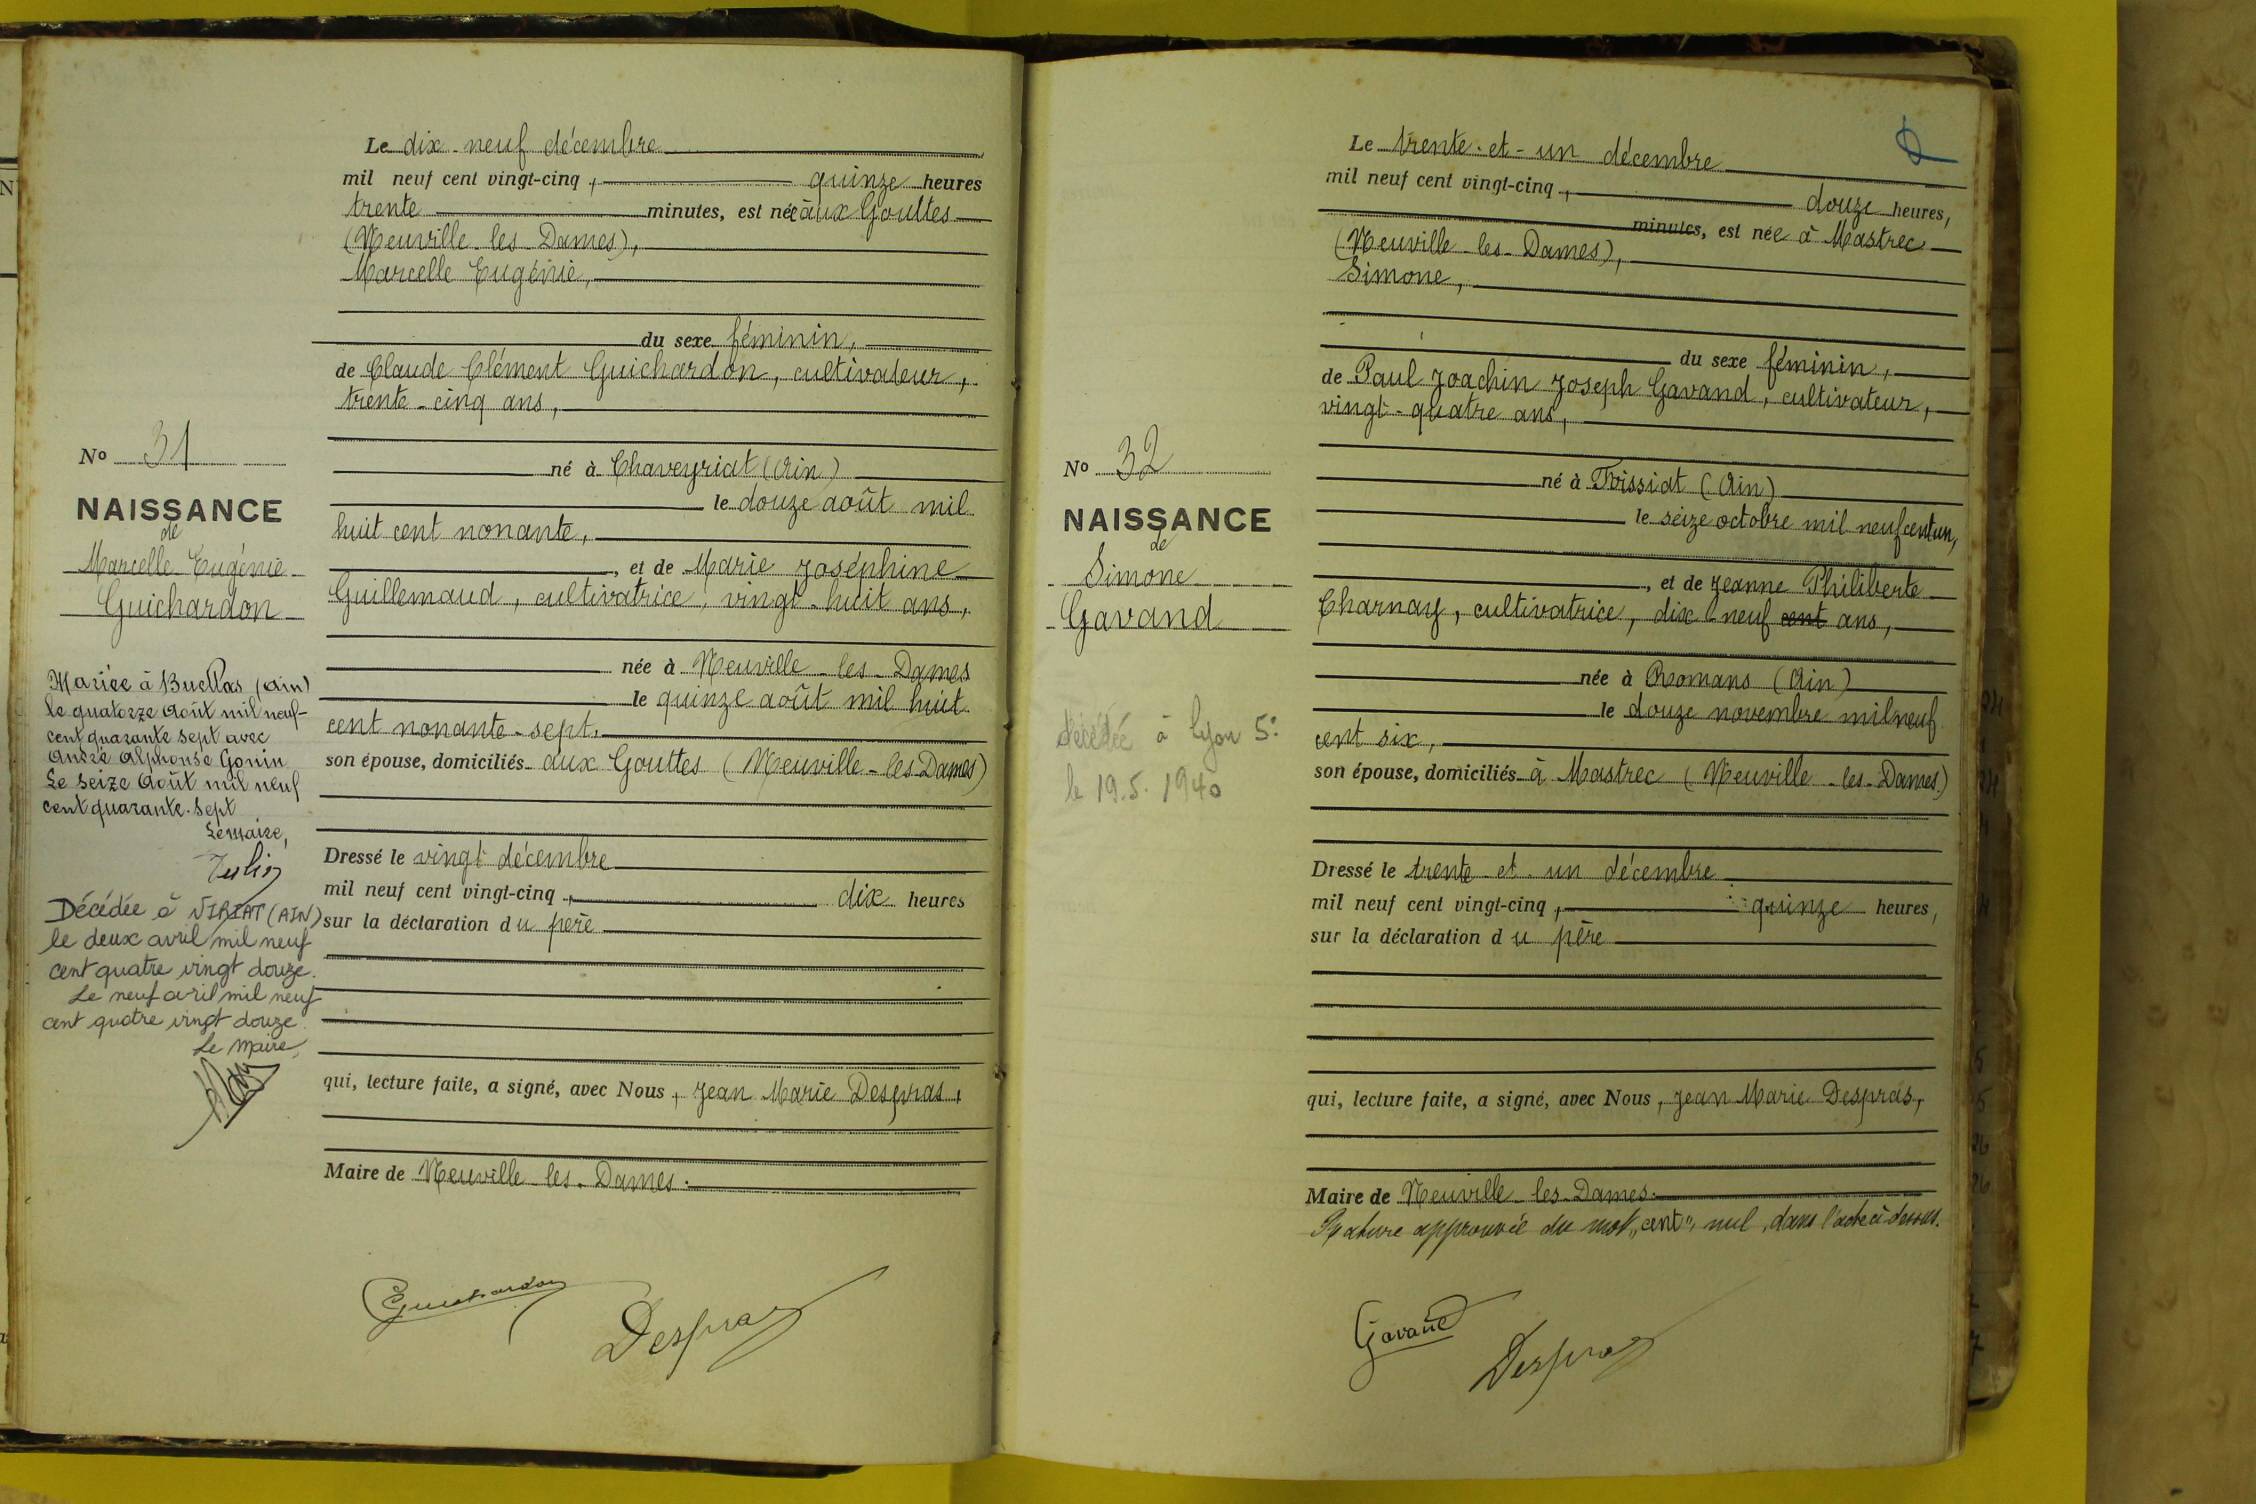 Le dix-neuf décembre
mil neuf cent vingt-cinq, quinze heures
trente minutes, est née aux Gouttes
(Neuville-les-Dames),
Marcelle Eugénie,
du sexe féminin,
de Claude Clément Guichardon, cultivateur,
trente-cinq ans,
né à Chaveyriat (Ain)
le douze août mil
huit cent nonante,
, et de Marie Joséphine
Guillemaud, cultivatrice, vingt-huit ans,
née à Neuville-les-Dames
le quinze août mil huit
cent nonante-sept,
son épouse, domiciliés aux Gouttes (Neuville-les-Dames)
Dressé le vingt décembre
mil neuf cent vingt-cinq, dix heures
sur la déclaration du père
qui, lecture faite, a signé, avec Nous, Jean Marie Despras,
Maire de Neuville-les-Dames.
Guichardon
Despras
No 31
NAISSANCE
de
Marcelle Eugénie
Guichardon
Mariée à Buellas (Ain)
le quatorze Août mil neuf-
cent quarante sept avec
André Alphonse Gonin
Le seize Août mil neuf
cent quarante-sept
Le Maire,
Décédée à VIRIAT (AIN)
le deux avril mil neuf
cent quatre vingt douze.
Le neuf avril mil neuf
cent quatre vingt douze.
Le Maire,
Le trente-et-un décembre
mil neuf cent vingt-cinq, douze heures,
minutes, est née à Mastrec
(Neuville-les-Dames),
Simone,
du sexe féminin,
de Paul Joachin Joseph Gavand, cultivateur,
vingt-quatre ans,
né à Trissiat (Ain)
le seize octobre mil neuf cent un,
, et de Jeanne Philiberte
Charnay, cultivatrice, dix-neuf cent ans,
née à Romans (Ain)
le douze novembre mil neuf
cent six,
son épouse, domiciliés à Mastrec (Neuville-les-Dames)
Dressé le trente et un décembre
mil neuf cent vingt-cinq, quinze heures,
sur la déclaration du père
qui, lecture faite, a signé, avec Nous, Jean Marie Despras,
Maire de Neuville-les-Dames.
Rature approuvée du mot "cent", nul, dans l'acte ci-dessus.
Gavand
Despras
No 32
NAISSANCE
de
Simone
Gavand
décédée à Lyon 5e
le 19.5.1940